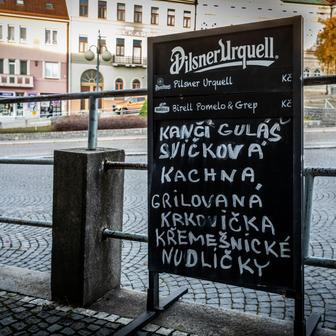 Pilsner Urquell.
Pilsner Urquell Kč
Birell Pomelo & Grep Kč
KANČÍ GULÁŠ
SVÍČKOVÁ
KACHNA
GRILOVANÁ
KRKOVIČKA
KŘEMEŽNICKÉ
NUDLIČKY